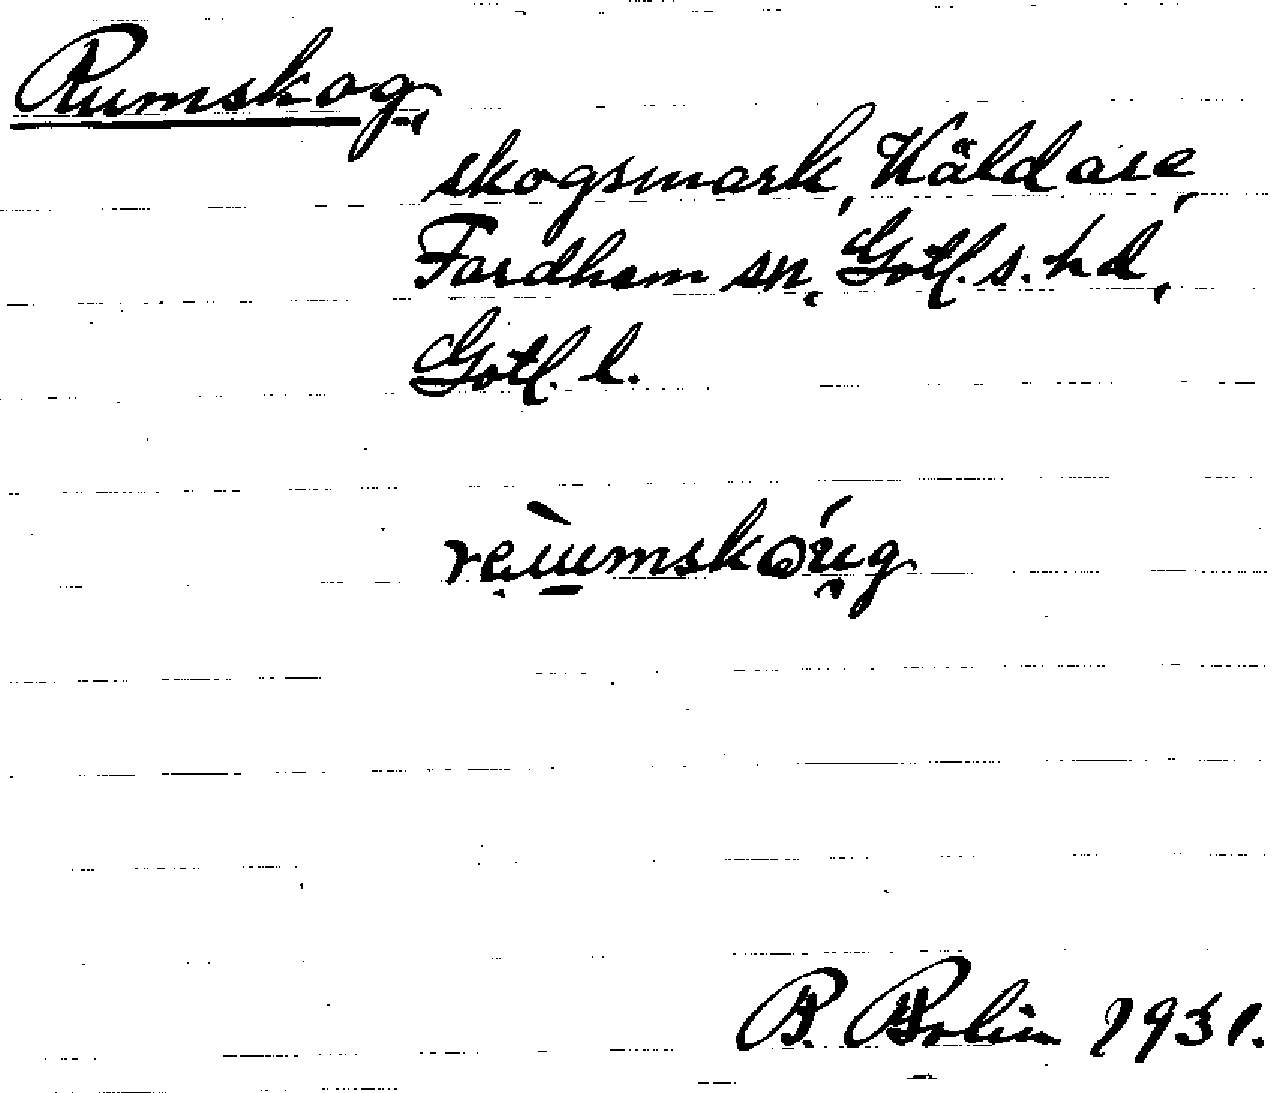 Rumskog,
skogsmark, Käldare,
Fardhem sn, Gotl. s. hd,
Gotl. l.
B. Bolin 1931.